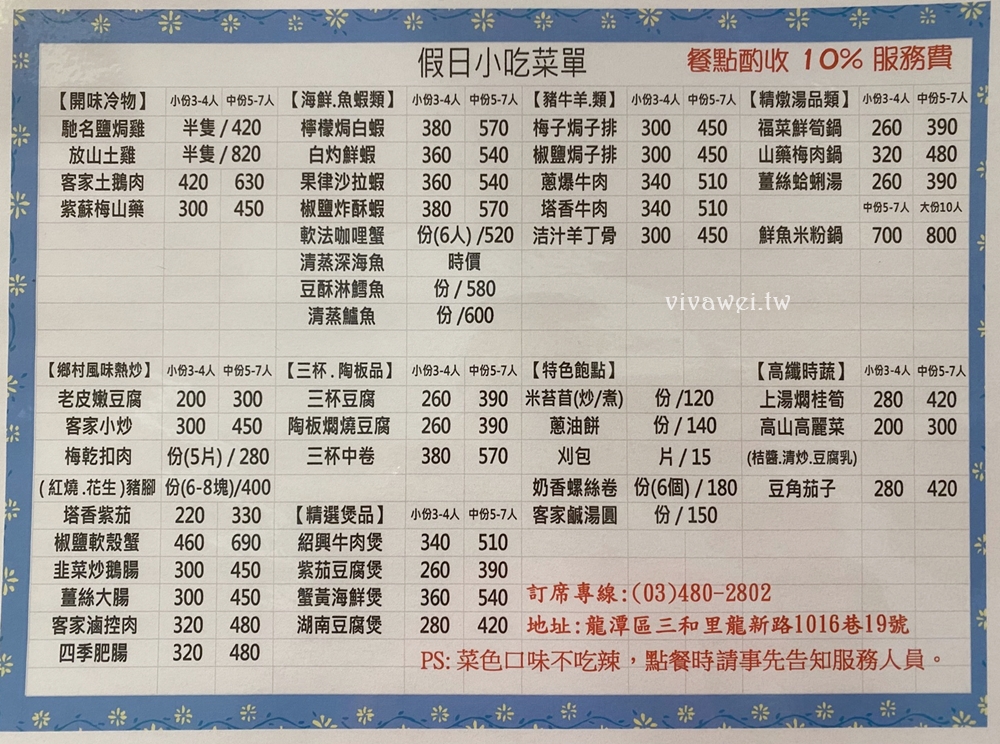 假日小吃菜單 餐點酌收 10% 服務費
【開味冷物】 小份3-4人 中份5-7人 【海鮮.魚蝦類】 小份3-4人 中份5-7人 【豬牛羊.類】 小份3-4人 中份5-7人 【精燉湯品類】 小份3-4人 中份5-7人
馳名鹽焗雞 半隻 / 420 檸檬焗白蝦 380 570 梅子焗子排 300 450 福菜鮮筍鍋 260 390
放山土雞 半隻 / 820 白灼鮮蝦 360 540 椒鹽焗子排 300 450 山藥梅肉鍋 320 480
客家土鵝肉 420 630 果律沙拉蝦 360 540 蔥爆牛肉 340 510 薑絲蛤蜊湯 260 390
紫蘇梅山藥 300 450 椒鹽炸酥蝦 380 570 塔香牛肉 340 510 中份5-7人 大份10人
軟法咖哩蟹 份(6人) /520 洁汁羊丁骨 300 450 鮮魚米粉鍋 700 800
清蒸深海魚 時價
豆酥淋鱈魚 份 / 580
清蒸鱸魚 份 /600
vivawei.tw
【鄉村風味熱炒】 小份3-4人 中份5-7人 【三杯.陶板品】 小份3-4人 中份5-7人 【特色飽點】 【高纖時蔬】 小份3-4人 中份5-7人
老皮嫩豆腐 200 300 三杯豆腐 260 390 米苔苜(炒/煮) 份 /120 上湯燜桂筍 280 420
客家小炒 300 450 陶板燜燒豆腐 260 390 蔥油餅 份 / 140 高山高麗菜 200 300
梅乾扣肉 份(5片) / 280 三杯中卷 380 570 刈包 片 / 15 (桔醬.清炒.豆腐乳)
(紅燒.花生)豬腳 份(6-8塊)/400 奶香螺絲卷 份(6個) / 180 豆角茄子 280 420
塔香紫茄 220 330 【精選煲品】 小份3-4人 中份5-7人 客家鹹湯圓 份 / 150
椒鹽軟殼蟹 460 690 紹興牛肉煲 340 510
韭菜炒鵝腸 300 450 紫茄豆腐煲 260 390
薑絲大腸 300 450 蟹黃海鮮煲 360 540 訂席專線:(03)480-2802
客家滷控肉 320 480 湖南豆腐煲 280 420 地址:龍潭區三和里龍新路1016巷19號
四季肥腸 320 480 PS:菜色口味不吃辣，點餐時請事先告知服務人員。